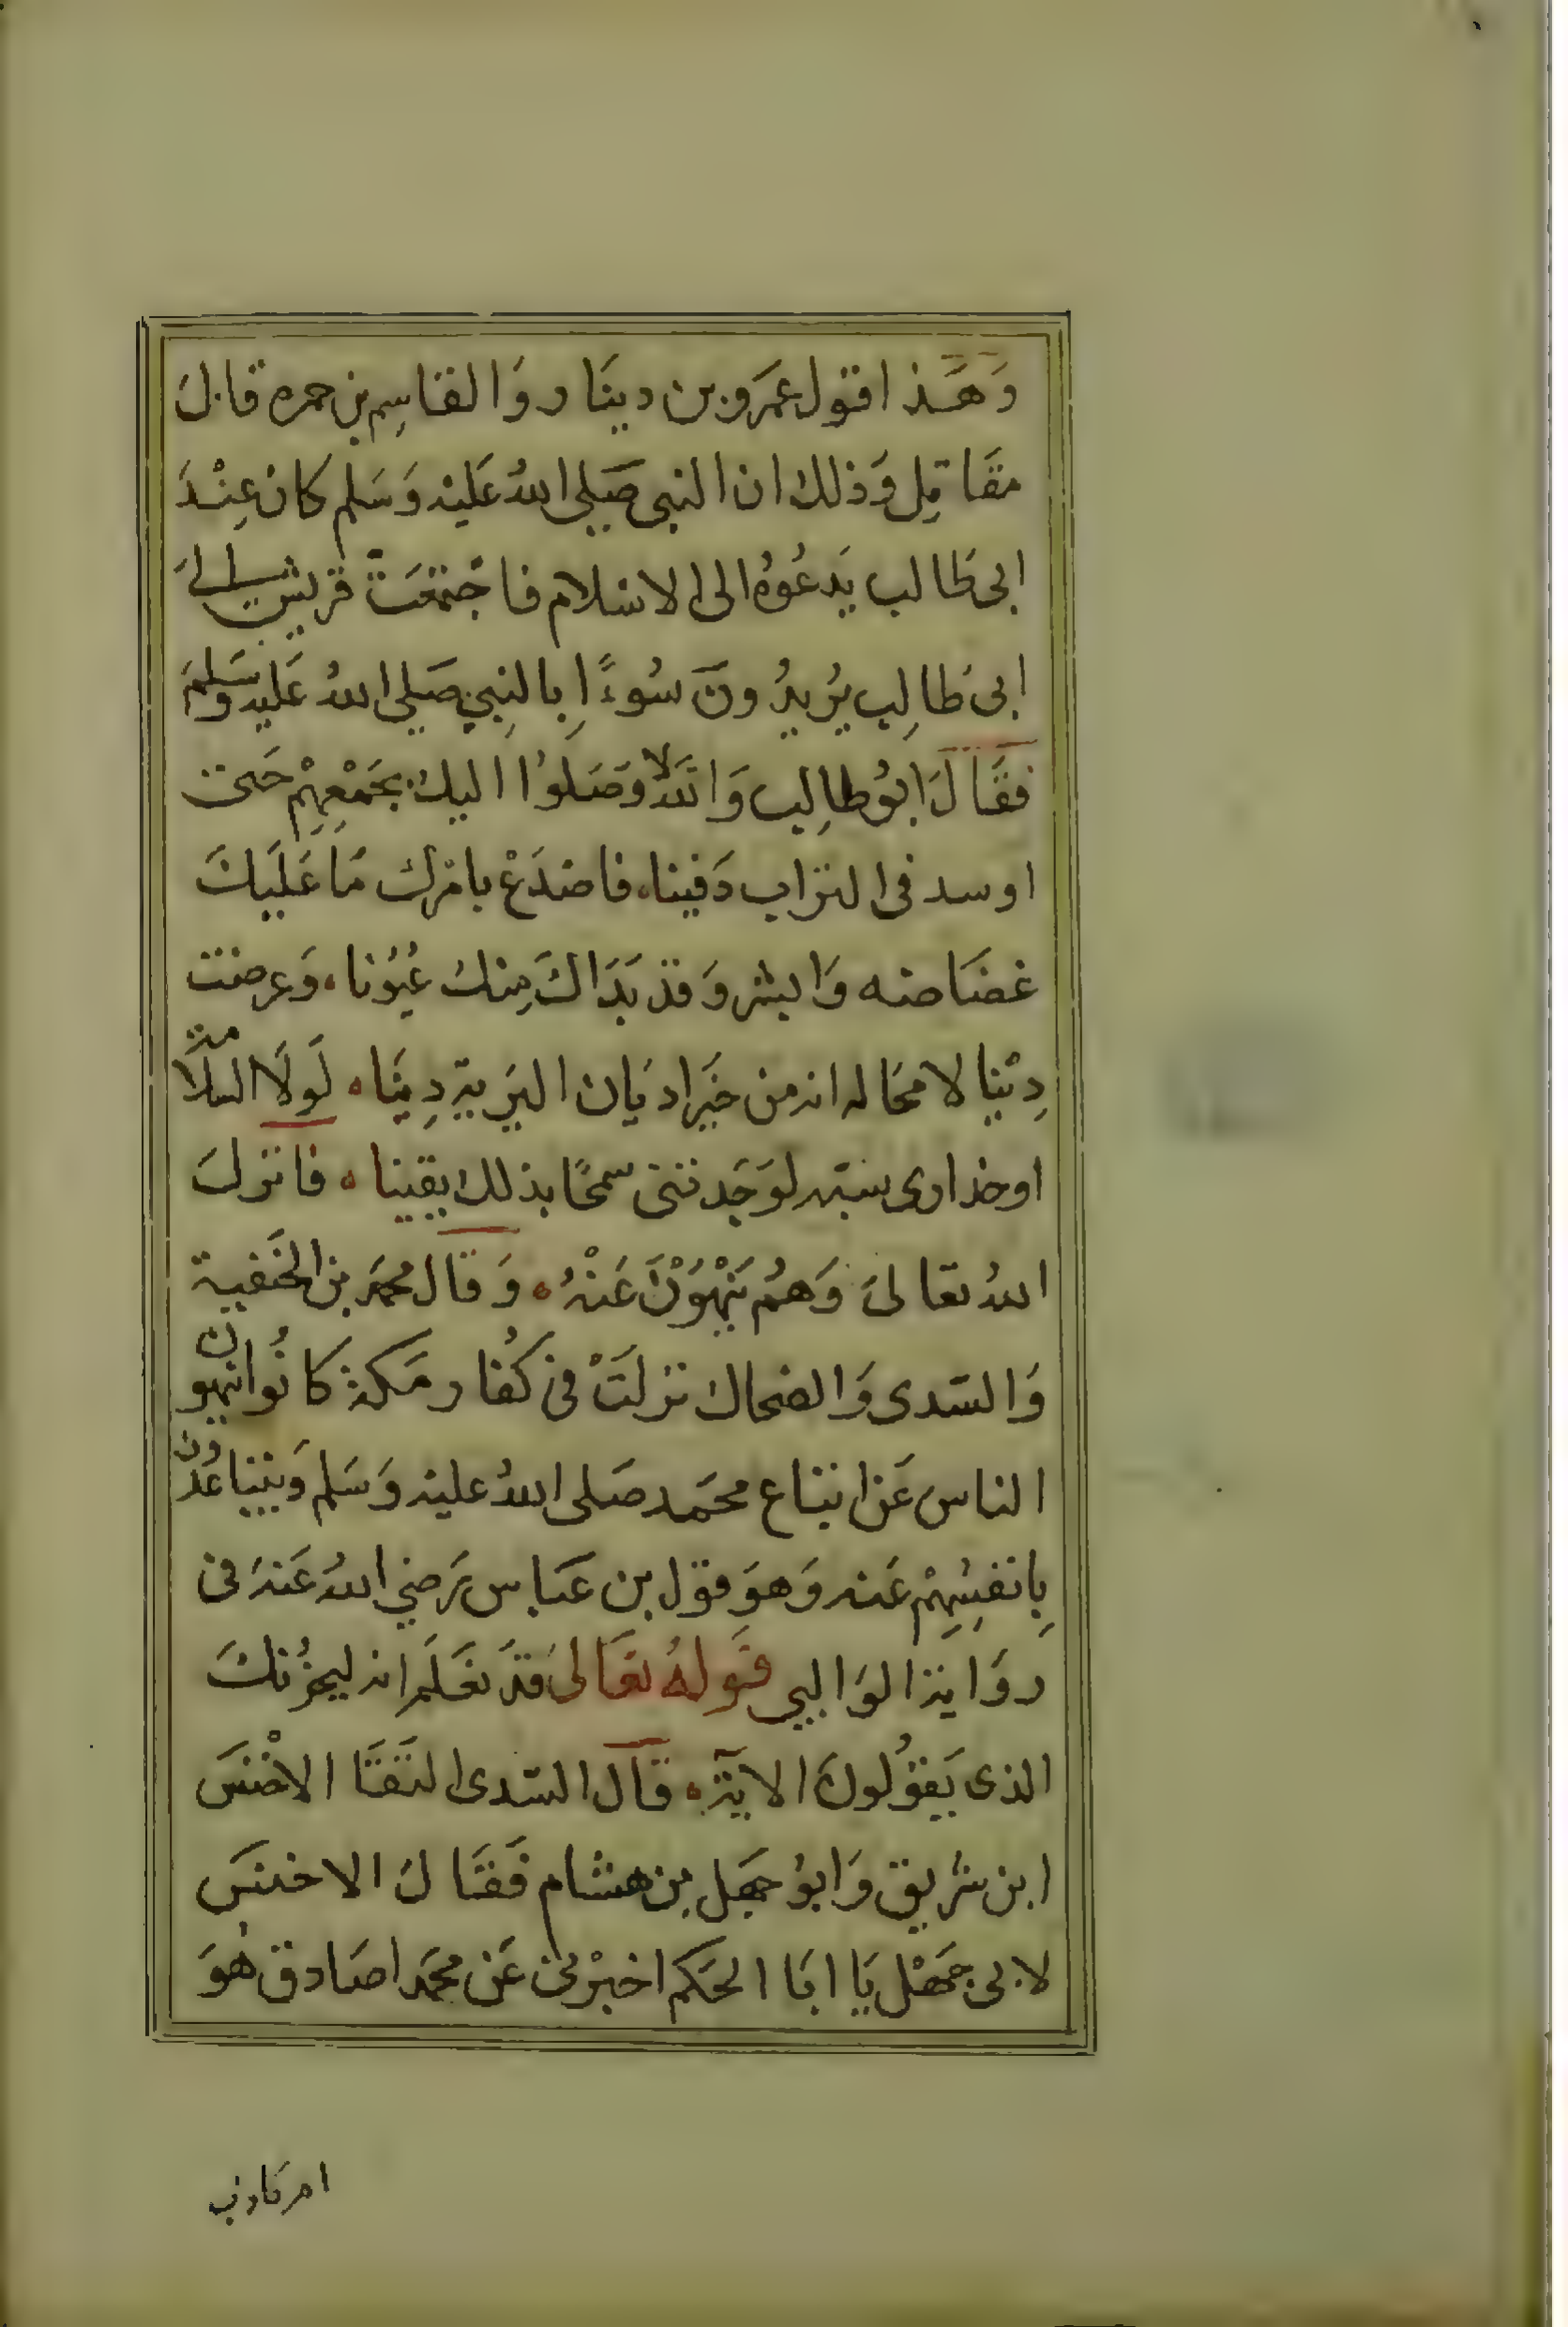 وَهَذا قول عمَرو بن دينَار وَالقاسِم بن حمره قال
مقَاتِل وَذلك ان النبي صَلي اللهُ عَليه وَسَلم كان عِنْدَ
ابى طالب يَدعُوهُ الى الاسلام فاجْتمعَتْ قريش الى
ابى طالِب يُريدُونَ سُوءًا بالنِبي صَلي اللهُ عَليه وَسَلم
فقَالَ ابوُ طالِب وَاللهِ لا وَصَلوُا اليك بجَمْعِهِمْ حَتى
اوسد فى التراب دَفينا، فاصْدَعْ بامْرك مَا عَلَيكَ
غضَاضه وَابشر وَقد بَدَاكَ مِنك عُيوُنا، وَعرضت
دِيْنا لا محَاله انه من خيَر ادَيان البَرية دِينَا، لَولَا الملامة
اوحذارى سبَه لوَجَدتنى سمحًا بذلك يقينا، فانزلَ
اللهُ تعالىَ وَهمُ يَنْهَوْنَ عَنْهُ، وَقال محمَد بن الحَنفية
وَالسّدى وَالضحاك نزلَتْ فى كفُار مَكة كانوُا ينهون
الناس عَن اتباع محمَد صَلى اللهُ عليه وَسَلم وَيتباعدُون
بِانفسِهِمْ عَنه وَهوَ قول بن عبَاس رَضي اللهُ عَنهَ فى
روَاية الوَالبي قوله تعَالىَ قدَ نعَلَم انه ليحزُنكَ
الذى يَقوُلونَ الايَة، قال السّدى التقَا الاخْنسَ
ابن شريق وَابوُ جهَل بن هشام فَقَالَ الاخنسَ
لابى جَهْل يَا ابَا الحَكم اخبرْنى عَن محمَد اصَادق هُوَ
امركاذب